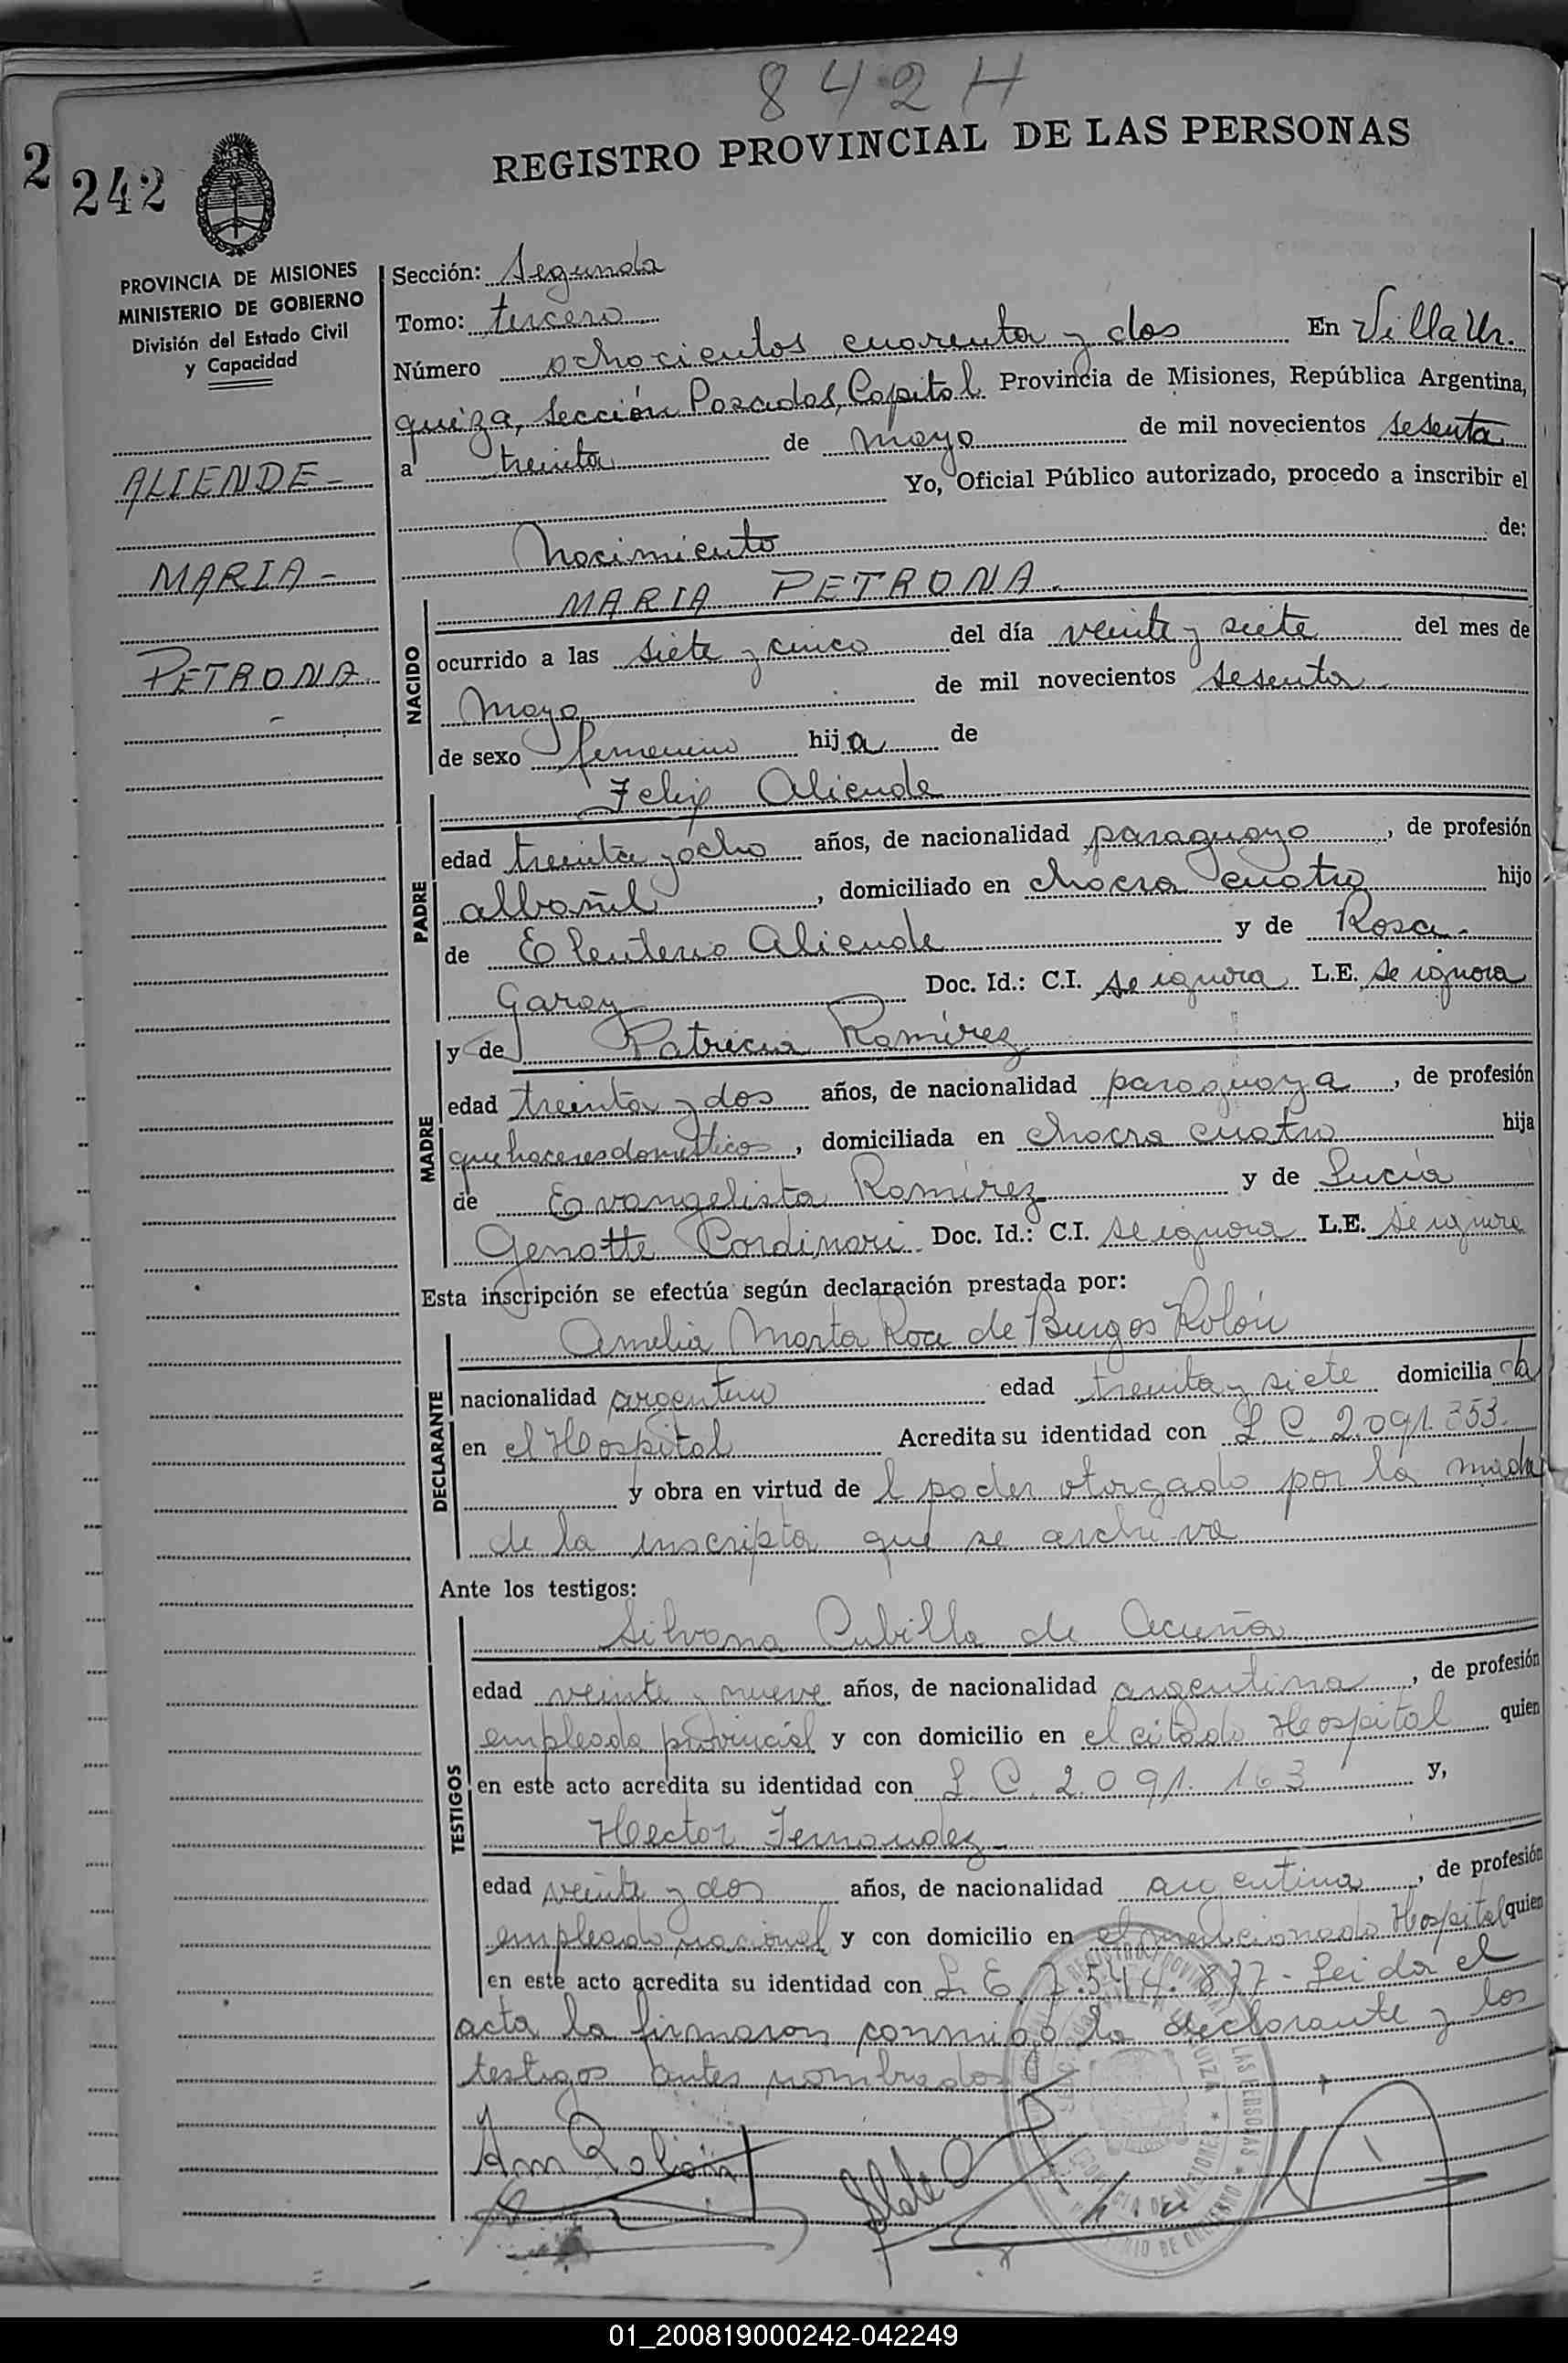 842H
2
242
REGISTRO PROVINCIAL DE LAS PERSONAS
PROVINCIA DE MISIONES
MINISTERIO DE GOBIERNO
División del Estado Civil
y Capacidad
ALIENDE-
MARIA-
PETRONA.
Sección: Segunda
Tomo: tercero
Número ochocientos cuarenta y dos En Villa Ur.
quiza, sección Posadas, Capital Provincia de Misiones, República Argentina,
a treinta de mayo de mil novecientos sesenta
Yo, Oficial Público autorizado, procedo a inscribir el
Nacimiento de:
MARIA PETRONA.
NACIDO
ocurrido a las siete y cinco del día veinte y siete del mes de
Mayo de mil novecientos sesenta
de sexo femenino hija de
Felix Aliende
PADRE
edad treinta y ocho años, de nacionalidad paraguayo, de profesión
albañil, domiciliado en chacra cuatro hijo
de Eleuterio Aliende y de Rosa
Garay Doc. Id.: C.I. se ignora L.E. se ignora
y de Patricia Ramírez
MADRE
edad treinta y dos años, de nacionalidad paraguaya, de profesión
quehaceres domésticos, domiciliada en chacra cuatro hija
de Evangelista Ramírez y de Lucía
Doc. Id.: C.I. se ignora L.E. se ignora
Esta inscripción se efectúa según declaración prestada por:
Amelia Marta Roa de Burgos Rolón
DECLARANTE
nacionalidad argentina edad treinta y siete domiciliada
en el Hospital Acredita su identidad con L.C. 2.091.353.
y obra en virtud del poder otorgado por la madre
de la inscripta que se archiva
Ante los testigos:
Silvana Cubilla de Acuña
TESTIGOS
edad veinte y nueve años, de nacionalidad argentina, de profesión
empleada provincial y con domicilio en el citado Hospital quien
en este acto acredita su identidad con L.C. 2.091.163 y,
Hector Fernandez
edad veinte y dos años, de nacionalidad argentina, de profesión
empleado nacional y con domicilio en el mencionado Hospital quien
en este acto acredita su identidad con L.E. 7.544.877- Leida el
acta la firmaron conmigo la declarante y los
testigos antes nombrados
01_200819000242-042249